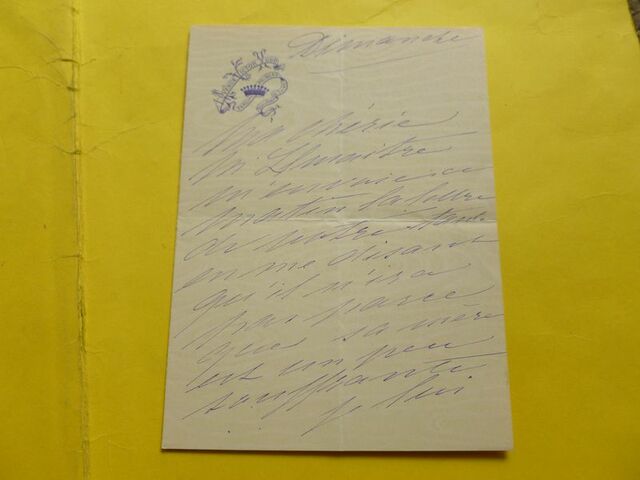 Dimanche
Ma chérie
Mr Lemaitre
m'envoie ce
matin la lettre
de votre
en me disant
qu'il n'ira
pas parce
que sa mère
est un peu
souffrante
je lui